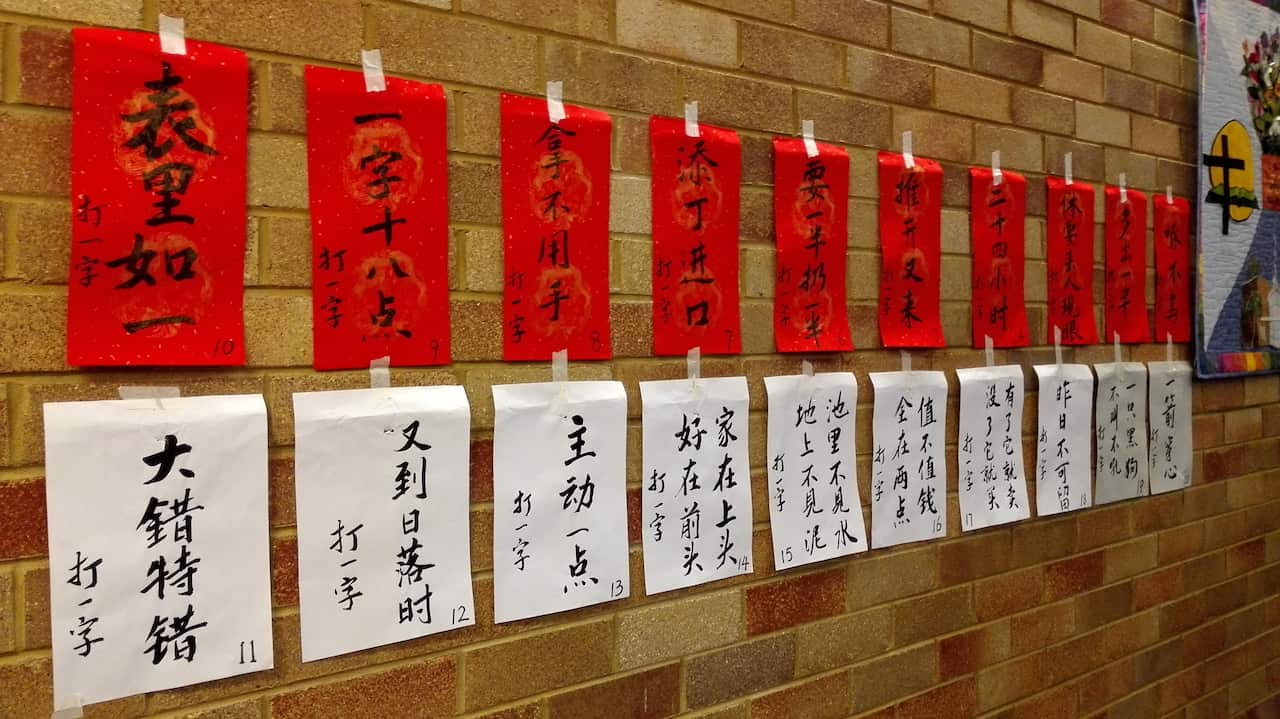 表里如一
打一字
10
一字十八点
打一字
9
拿不用手
打一字
8
添丁进口
打一字
7
要一半扔一半
打一字
推开又来
打一字
二十四小时
打一字
休要丢人现眼
打一字
多出一半
打一字
打一字
大错特错
打一字
11
又到日落时
打一字
12
主动一点
打一字
13
家在上头
好在前头
打一字
14
池里不见水
地上不见泥
打一字
15
值不值钱
全在两点
打一字
16
有了它就卖
没了它就买
打一字
17
昨日不可留
打一字
18
一只黑狗
不叫不吼
打一字
19
一箭穿心
打一字
20